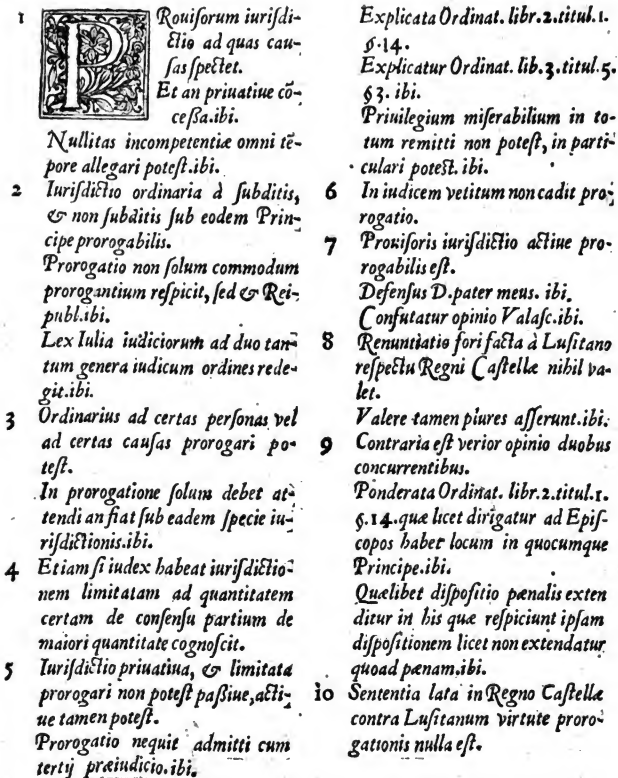 1 PRouiſorum iuriſdi-
ctio ad quas cau-
ſas ſpectet.
Et an priuatiue cō-
ceſſa.ibi.
Nullitas incompetentiæ omni tē-
pore allegari poteſt.ibi.
2 Iuriſdictio ordinaria à ſubditis,
& non ſubditis ſub eodem Prin-
cipe prorogabilis.
Prorogatio non ſolum commodum
prorogantium reſpicit, ſed & Rei-
publ.ibi.
Lex Iulia iudiciorum ad duo tan-
tum genera iudicum ordines rede-
git.ibi.
3 Ordinarius ad certas perſonas vel
ad certas cauſas prorogari po-
teſt.
In prorogatione ſolum debet at-
tendi an fiat ſub eadem ſpecie iu-
riſdictionis.ibi.
4 Etiam ſi iudex habeat iuriſdictio-
nem limitatam ad quantitatem
certam de conſenſu partium de
maiori quantitate cognoſcit.
5 Iuriſdictio priuatiua, & limitata
prorogari non poteſt paſſiue, acti-
ue tamen poteſt.
Prorogatio nequit admitti cum
tertij præiudicio.ibi.
Explicata Ordinat. libr.2.titul.1.
§.14.
Explicatur Ordinat. lib.3.titul.5.
§3. ibi.
Priuilegium miſerabilium in to-
tum remitti non poteſt, in parti-
culari poteſt. ibi.
6 In iudicem vetitum non cadit pro-
rogatio.
7 Prouiſoris iuriſdictio actiue pro-
rogabilis eſt.
Defenſus D.pater meus. ibi.
Confutatur opinio Valaſc.ibi.
8 Renuntiatio fori facta à Luſitano
reſpectu Regni Caſtellæ nihil va-
let.
Valere tamen plures aſſerunt.ibi.
9 Contraria eſt verior opinio duobus
concurrentibus.
Ponderata Ordinat. libr.2.titul.1.
§.14.quæ licet dirigatur ad Epiſ-
copos habet locum in quocumque
Principe.ibi.
Quælibet diſpoſitio pænalis exten
ditur in his quæ reſpiciunt ipſam
diſpoſitionem licet non extendatur
quoad pænam.ibi.
10 Sententia lata in Regno Caſtellæ
contra Luſitanum virtute proro-
gationis nulla eſt.